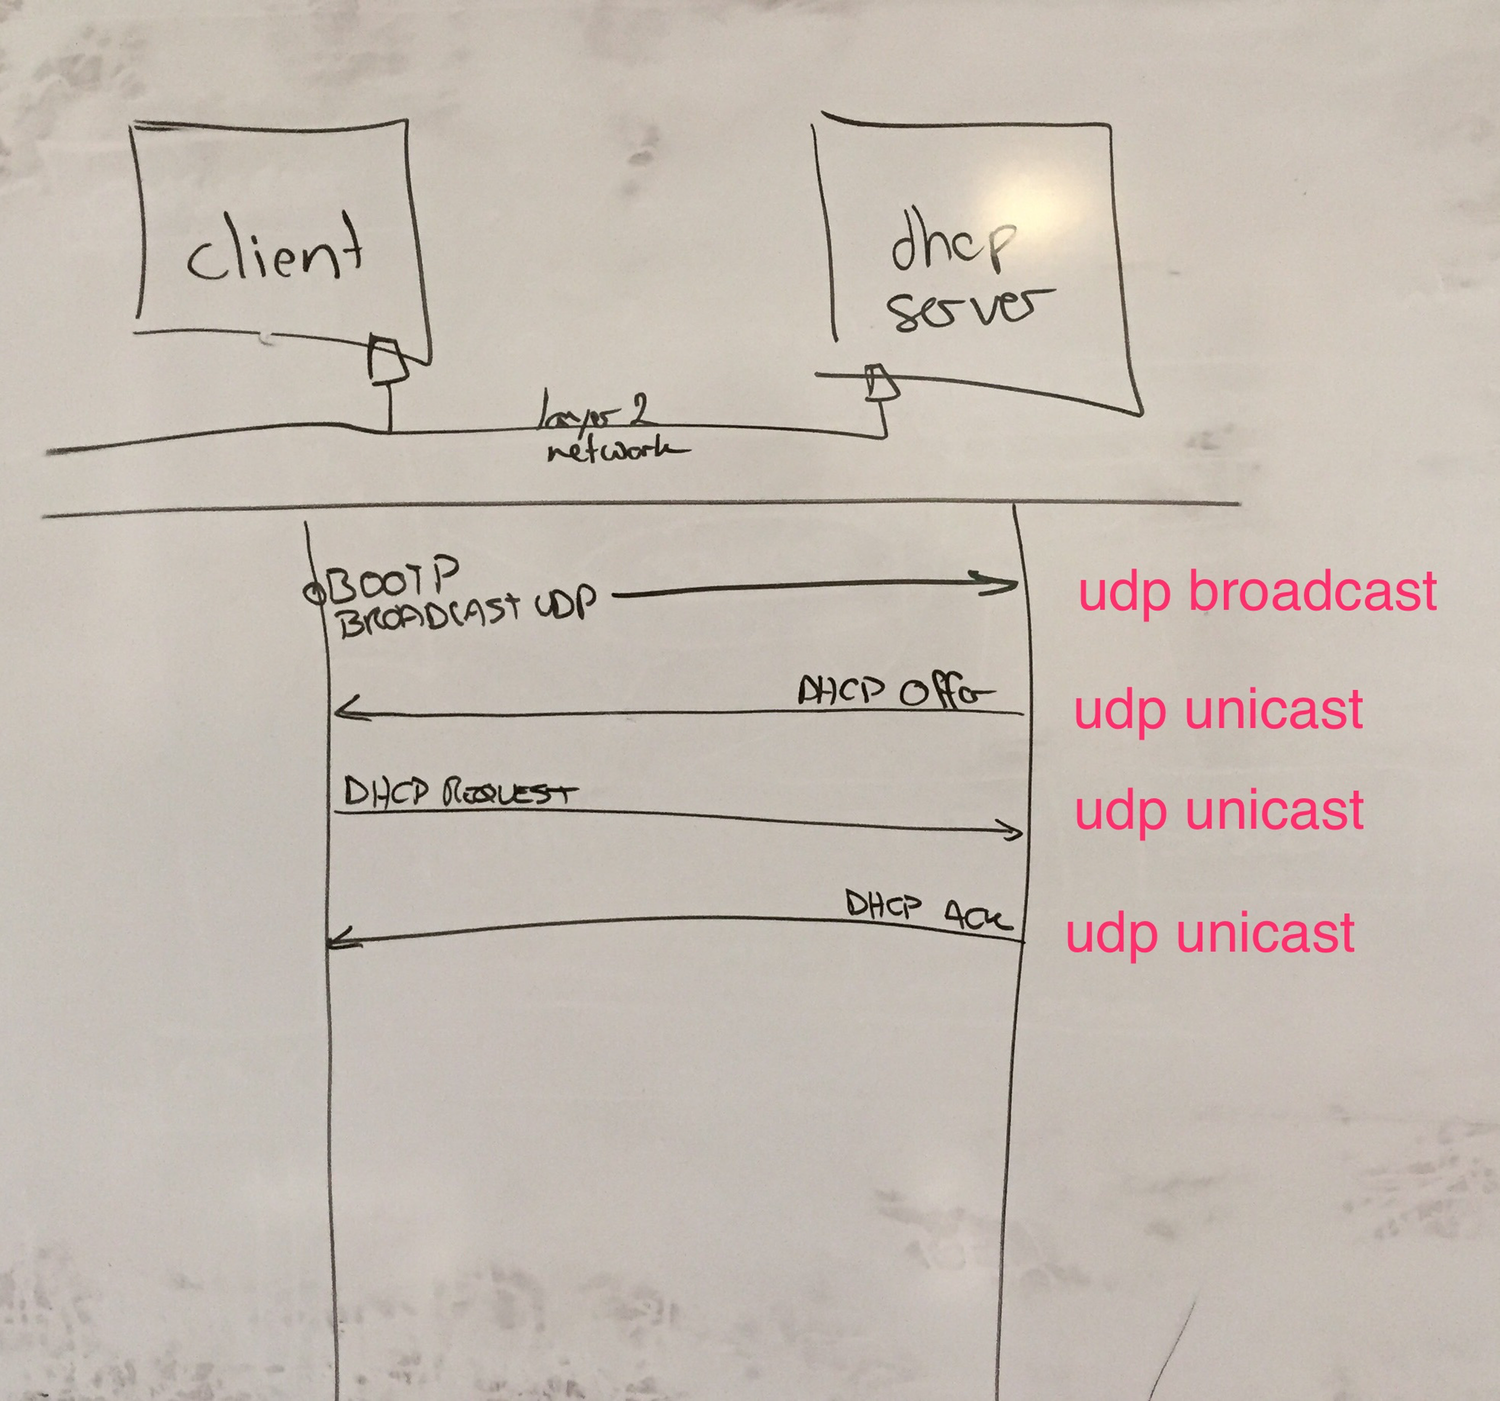 client
dhcp
server
layer 2
network
BOOTP
BROADCAST UDP
udp broadcast
DHCP Offer
udp unicast
DHCP REQUEST
udp unicast
DHCP ACK
udp unicast